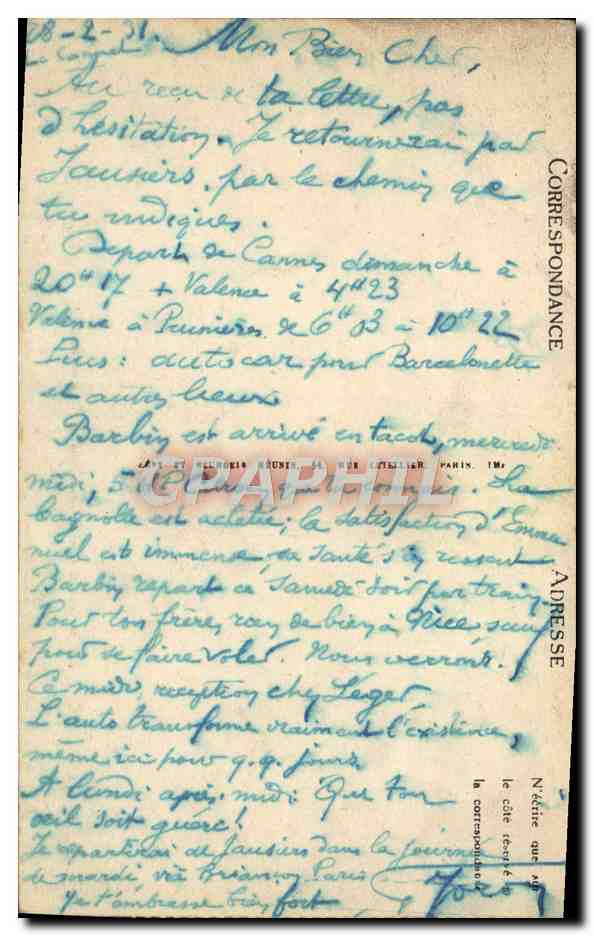 28-2-31.
Le Cannet
Mon Bien Cher,
Au reçu de ta lettre, pas
d'hésitation. Je retournerai par
Jausiers, par le chemin que
tu indiques.
Départ de Cannes dimanche à
20H17 + Valence à 4H23
Valence à Prunières de 6H03 à 10H22
Puis : autocar pour Barcelonette
et autres lieux
Barbin est arrivé en tacot, mercredi
midi, 5
bagnolle est achetée; la satisfaction d'Emma
nuel est immense, sa santé s'en ressent
Barbin repart ce Samedi soir par train
Pour ton frère, rien de bien à Nice, sauf
pour se faire voler. Nous verrons.
Ce midi, réception chez Léger,
L'auto transforme vraiment l'existence,
même ici pour q.q. jours
A lundi après-midi. Que ton
œil soit guéri!
Je repartirai de Jausiers dans la journée
de mardi via Briançon, Paris
Je t'embrasse bien fort
CARTHAPHILE
LEVY ET NEURDEIN RÉUNIS, 44, RUE LETELLIER, PARIS. IMP
CORRESPONDANCE
ADRESSE
N'écrire que au
le côté réservé à
la correspondance